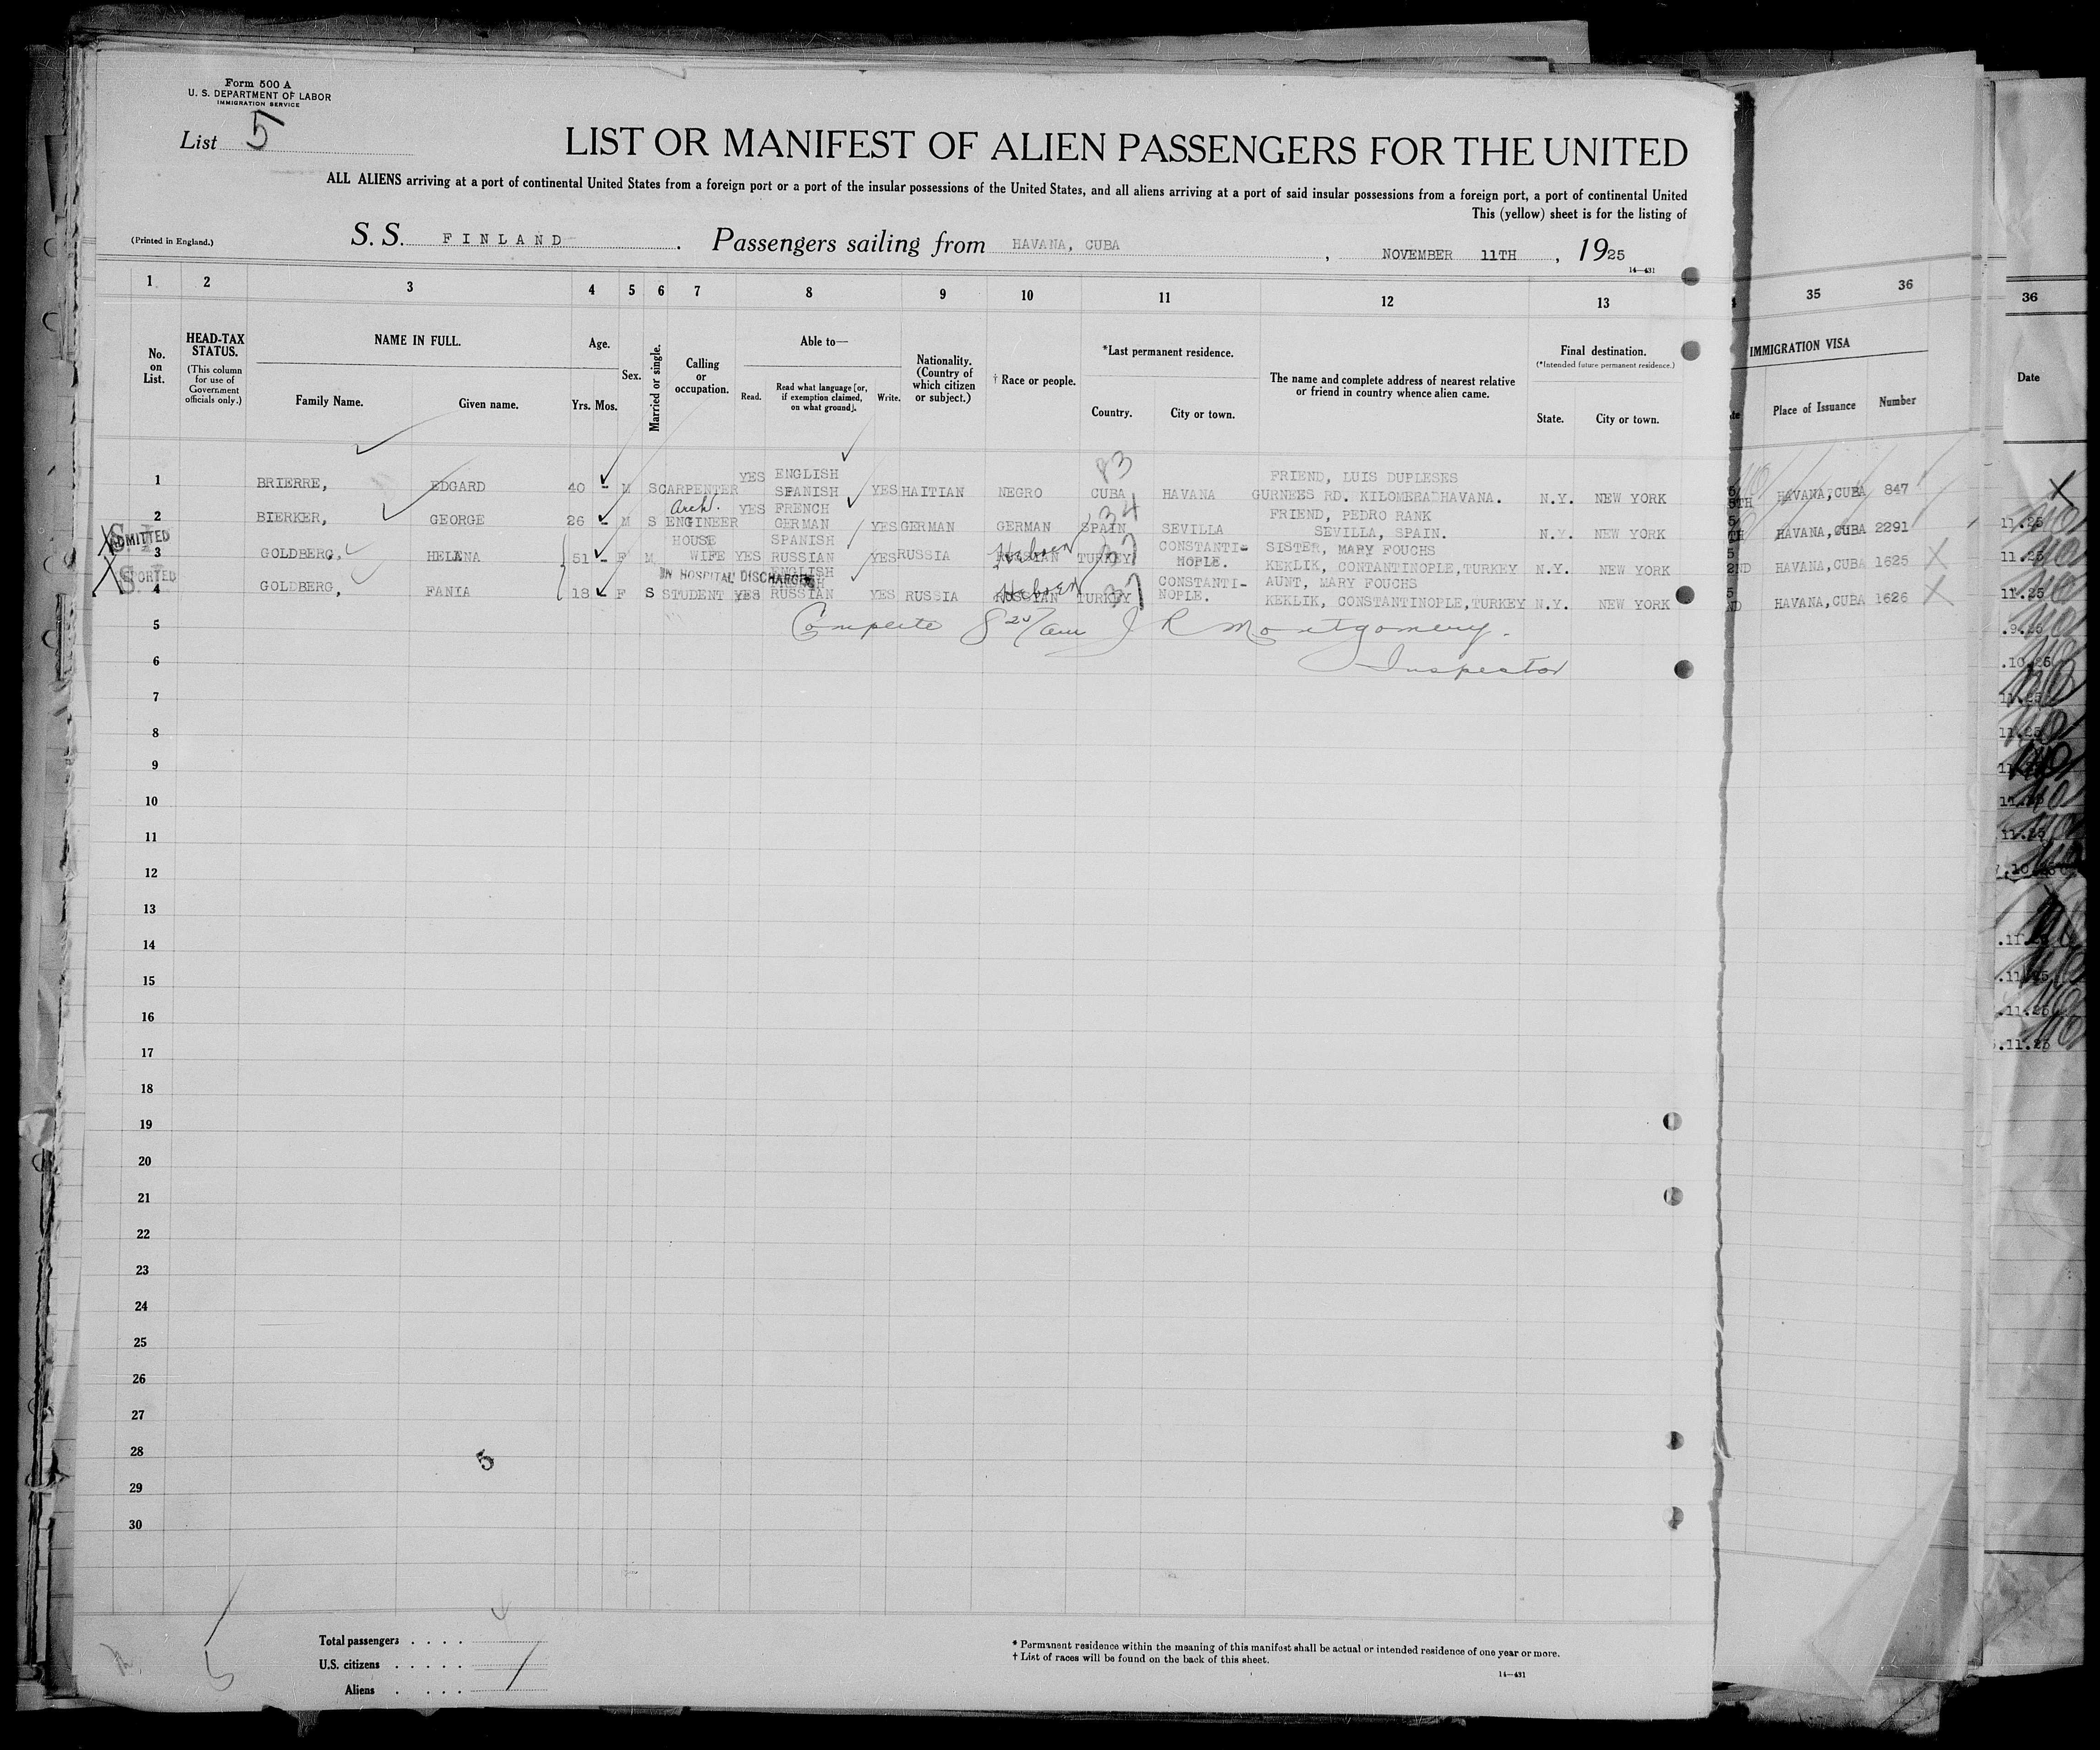 Form 500 A
U. S. DEPARTMENT OF LABOR
IMMIGRATION SERVICE
List 5
LIST OR MANIFEST OF ALIEN PASSENGERS FOR THE UNITED
ALL ALIENS arriving at a port of continental United States from a foreign port or a port of the insular possessions of the United States, and all aliens arriving at a port of said insular possessions from a foreign port, a port of continental United
This (yellow) sheet is for the listing of
(Printed in England.) S. S. FINLAND. Passengers sailing from HAVANA, CUBA, NOVEMBER 11TH, 1925
14—431
1 2 3 4 5 6 7 8 9 10 11 12 13 35 36 36
No. on List.
HEAD-TAX STATUS.
(This column for use of Government officials only.)
NAME IN FULL.
Family Name. Given name.
Age.
Yrs. Mos.
Sex.
Married or single.
Calling or occupation.
Able to—
Read. Read what language [or, if exemption claimed, on what ground]. Write.
Nationality. (Country of which citizen or subject.)
† Race or people.
*Last permanent residence.
Country. City or town.
The name and complete address of nearest relative or friend in country whence alien came.
Final destination.
(*Intended future permanent residence.)
State. City or town.
IMMIGRATION VISA
Place of Issuance Number
Date
83
1 BRIERRE, EDGARD 40 - M S CARPENTER YES ENGLISH SPANISH YES HAITIAN NEGRO CUBA HAVANA FRIEND, LUIS DUPLESES N.Y. NEW YORK HAVANA, CUBA 847
34
2 BIERKER, GEORGE 26 - M S Arch. ENGINEER YES FRENCH GERMAN YES GERMAN GERMAN SPAIN SEVILLA FRIEND, PEDRO RANK SEVILLA, SPAIN. N.Y. NEW YORK HAVANA, CUBA 2291
ADMITTED
3 GOLDBERG, HELENA 51 - F M HOUSE WIFE YES SPANISH RUSSIAN YES RUSSIA Hebrew RUSSIAN TURKEY 37 CONSTANTI-NOPLE. SISTER, MARY FOUCHS KEKLIK, CONTANTINOPLE, TURKEY N.Y. NEW YORK HAVANA, CUBA 1625
IN HOSPITAL DISCHARGED
4 GOLDBERG, FANIA 18 F S STUDENT YES ENGLISH RUSSIAN YES RUSSIA Hebrew RUSSIAN TURKEY 37 CONSTANTI-NOPLE. AUNT, MARY FOUCHS KEKLIK, CONSTANTINOPLE, TURKEY N.Y. NEW YORK HAVANA, CUBA 1626
5 Complete 8 20/am J R Montgomery.
6 Inspector
7
8
9
10
11
12
13
14
15
16
17
18
19
20
21
22
23
24
25
26
27
28 5
29
30
Total passengers . . . .
U.S. citizens . . . . .
Aliens . . . .
* Permanent residence within the meaning of this manifest shall be actual or intended residence of one year or more.
† List of races will be found on the back of this sheet.
14—431